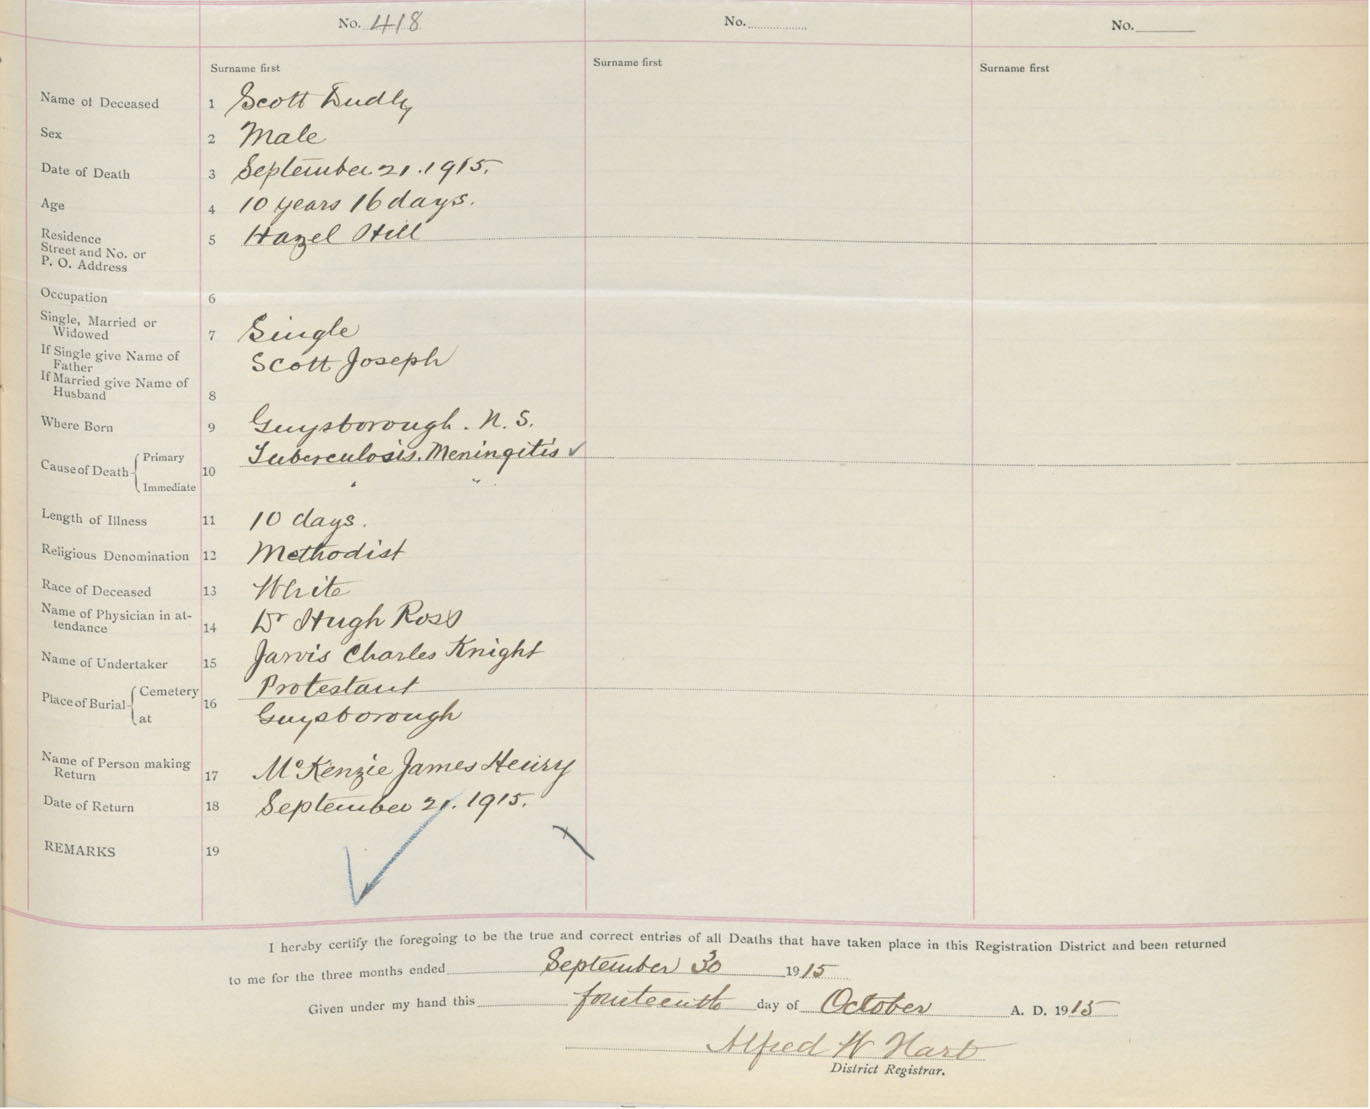 No. 418
No.
No.
Surname first
Surname first
Surname first
Name of Deceased 1 Scott Dudly
Sex 2 Male
Date of Death 3 September 21. 1915.
Age 4 10 years 16 days.
Residence
Street and No. or
P. O. Address 5 Hazel Hill
Occupation 6
Single, Married or
Widowed 7 Single
If Single give Name of
Father Scott Joseph
If Married give Name of
Husband 8
Where Born 9 Guysborough. N. S.
Cause of Death Primary 10 Tuberculosis. Meningitis ✓
Immediate " "
Length of Illness 11 10 days.
Religious Denomination 12 Methodist
Race of Deceased 13 White
Name of Physician in at-
tendance 14 Dr Hugh Ross
Name of Undertaker 15 Jarvis Charles Knight
Place of Burial Cemetery 16 Protestant
at Guysborough
Name of Person making
Return 17 McKenzie James Henry
Date of Return 18 September 21. 1915.
REMARKS 19
I hereby certify the foregoing to be the true and correct entries of all Deaths that have taken place in this Registration District and been returned
to me for the three months ended September 30 1915
Given under my hand this fourteenth day of October A. D. 1915
Alfred W Hart
District Registrar.